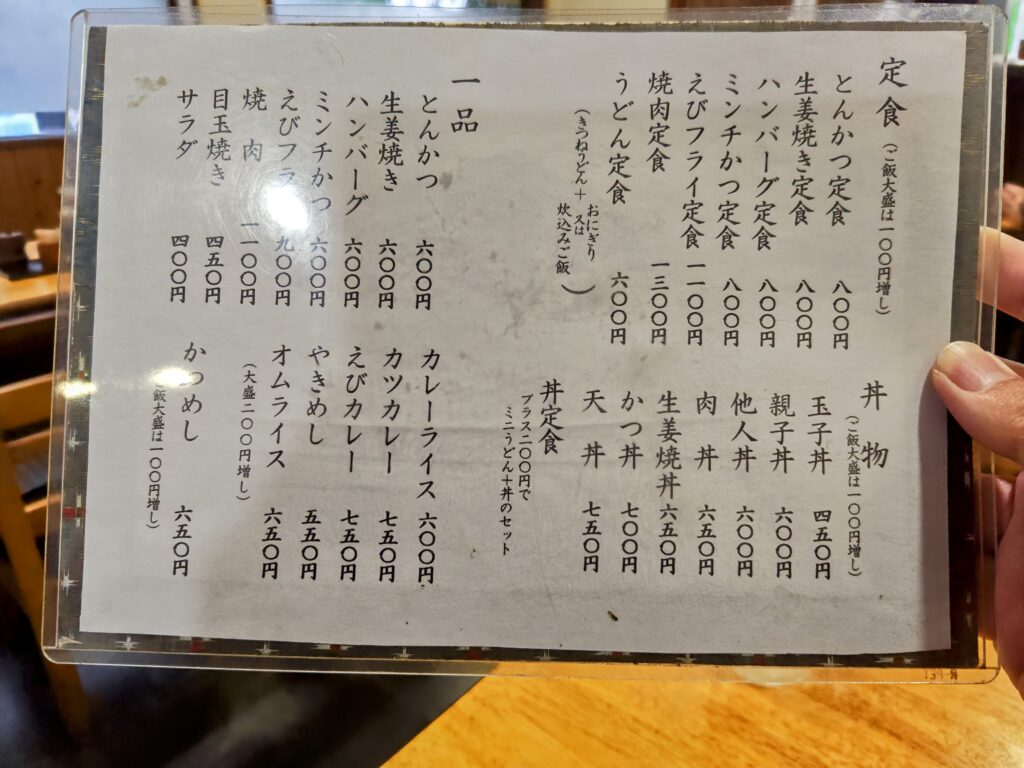 定食（ご飯大盛は一〇〇円増し）
とんかつ定食　八〇〇円
生姜焼き定食　八〇〇円
ハンバーグ定食　八〇〇円
ミンチかつ定食　八〇〇円
えびフライ定食　一一〇〇円
焼肉定食　一三〇〇円
うどん定食　六〇〇円
（きつねうどん＋おにぎり又は炊込みご飯）
丼物（ご飯大盛は一〇〇円増し）
玉子丼　四五〇円
親子丼　六〇〇円
他人丼　六〇〇円
肉丼　六五〇円
生姜焼丼　六五〇円
かつ丼　七〇〇円
天丼　七五〇円
丼定食
プラス二〇〇円で
ミニうどん＋丼のセット
一品
とんかつ　六〇〇円
生姜焼き　六〇〇円
ハンバーグ　六〇〇円
ミンチかつ　六〇〇円
えびフラ　九〇〇円
焼肉　一一〇〇円
目玉焼き　四五〇円
サラダ　四〇〇円
カレーライス　六〇〇円
カツカレー　七五〇円
えびカレー　七五〇円
やきめし　五五〇円
オムライス　六五〇円
（大盛二〇〇円増し）
かつめし　六五〇円
ご飯大盛は一〇〇円増し）